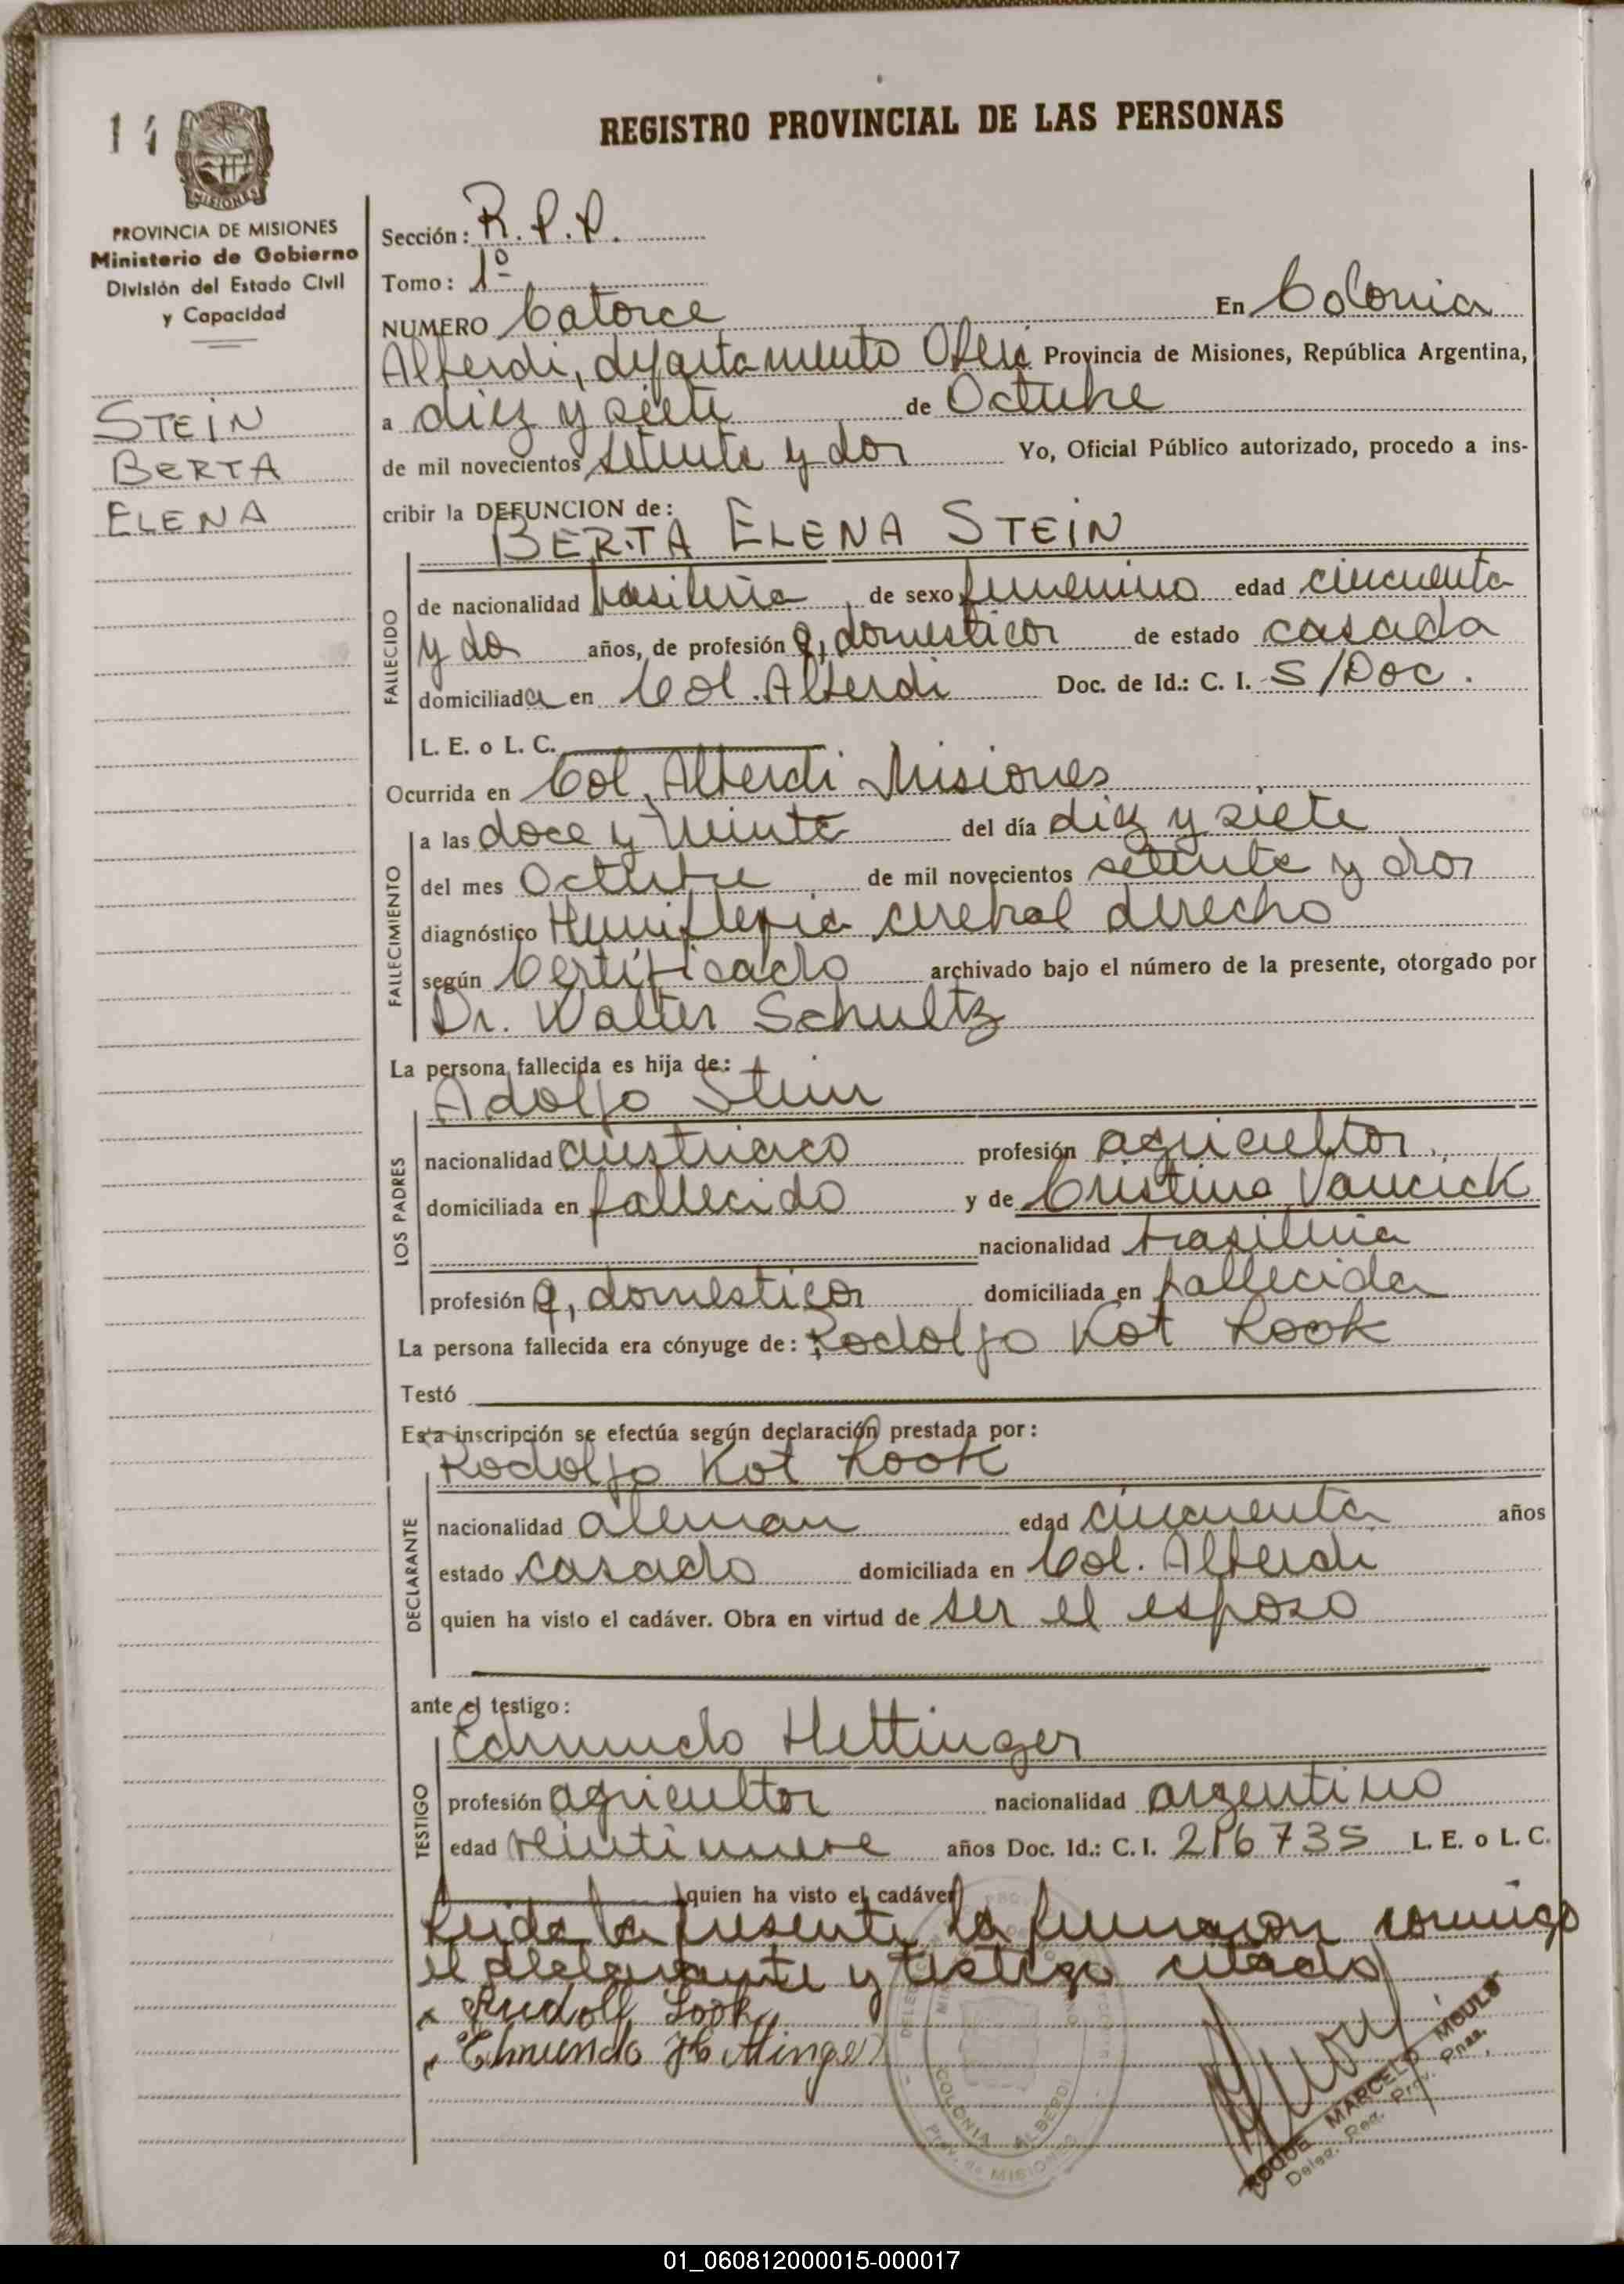 14
REGISTRO PROVINCIAL DE LAS PERSONAS
MISIONES
PROVINCIA DE MISIONES
Ministerio de Gobierno
División del Estado Civil
y Capacidad
STEIN
BERTA
ELENA
Sección: R.P.P.
Tomo: 1º
NUMERO Catorce En Colonia
Alberdi, departamento Oberá Provincia de Misiones, República Argentina,
a diez y siete de Octubre
de mil novecientos setenta y dos Yo, Oficial Público autorizado, procedo a ins-
cribir la DEFUNCION de:
BERTA ELENA STEIN
FALLECIDO
de nacionalidad brasileña, de sexo femenino edad cincuenta
y dos años, de profesión q, domesticos de estado casada
domiciliada en Col. Alberdi Doc. de Id.: C. I. S/Doc.
L. E. o L. C.
Ocurrida en Col. Alberdi Misiones
FALLECIMIENTO
a las doce y veinte del día diez y siete
del mes Octubre de mil novecientos setenta y dos
diagnóstico Hemiplegia cerebral derecho
según Certificado archivado bajo el número de la presente, otorgado por
Dr. Walter Schultz
La persona fallecida es hija de:
Adolfo Stein
LOS PADRES
nacionalidad austriaco profesión agricultor
domiciliada en fallecido y de Cristina Vancick
nacionalidad brasileña
profesión q, domesticos domiciliada en fallecida
La persona fallecida era cónyuge de: Rodolfo Kot Look
Testó
Esta inscripción se efectúa según declaración prestada por:
Rodolfo Kot Look
DECLARANTE
nacionalidad aleman edad cincuenta años
estado casado domiciliada en Col. Alberdi
quien ha visto el cadáver. Obra en virtud de ser el esposo
ante el testigo:
Edmundo Hettinger
TESTIGO
profesión agricultor nacionalidad argentino
edad veintinueve años Doc. Id.: C. I. 216735 L. E. o L. C.
quien ha visto el cadáver
Leida la presente la firmaron conmigo
el declarante y testigo citado
Rudolf Look
Edmundo Hettinger
COLONIA ALBERDI
Prov. de MISIONES
ROQUE MARCELO MOULO
Deleg. Reg. Prov. Pnas.
01_060812000015-000017